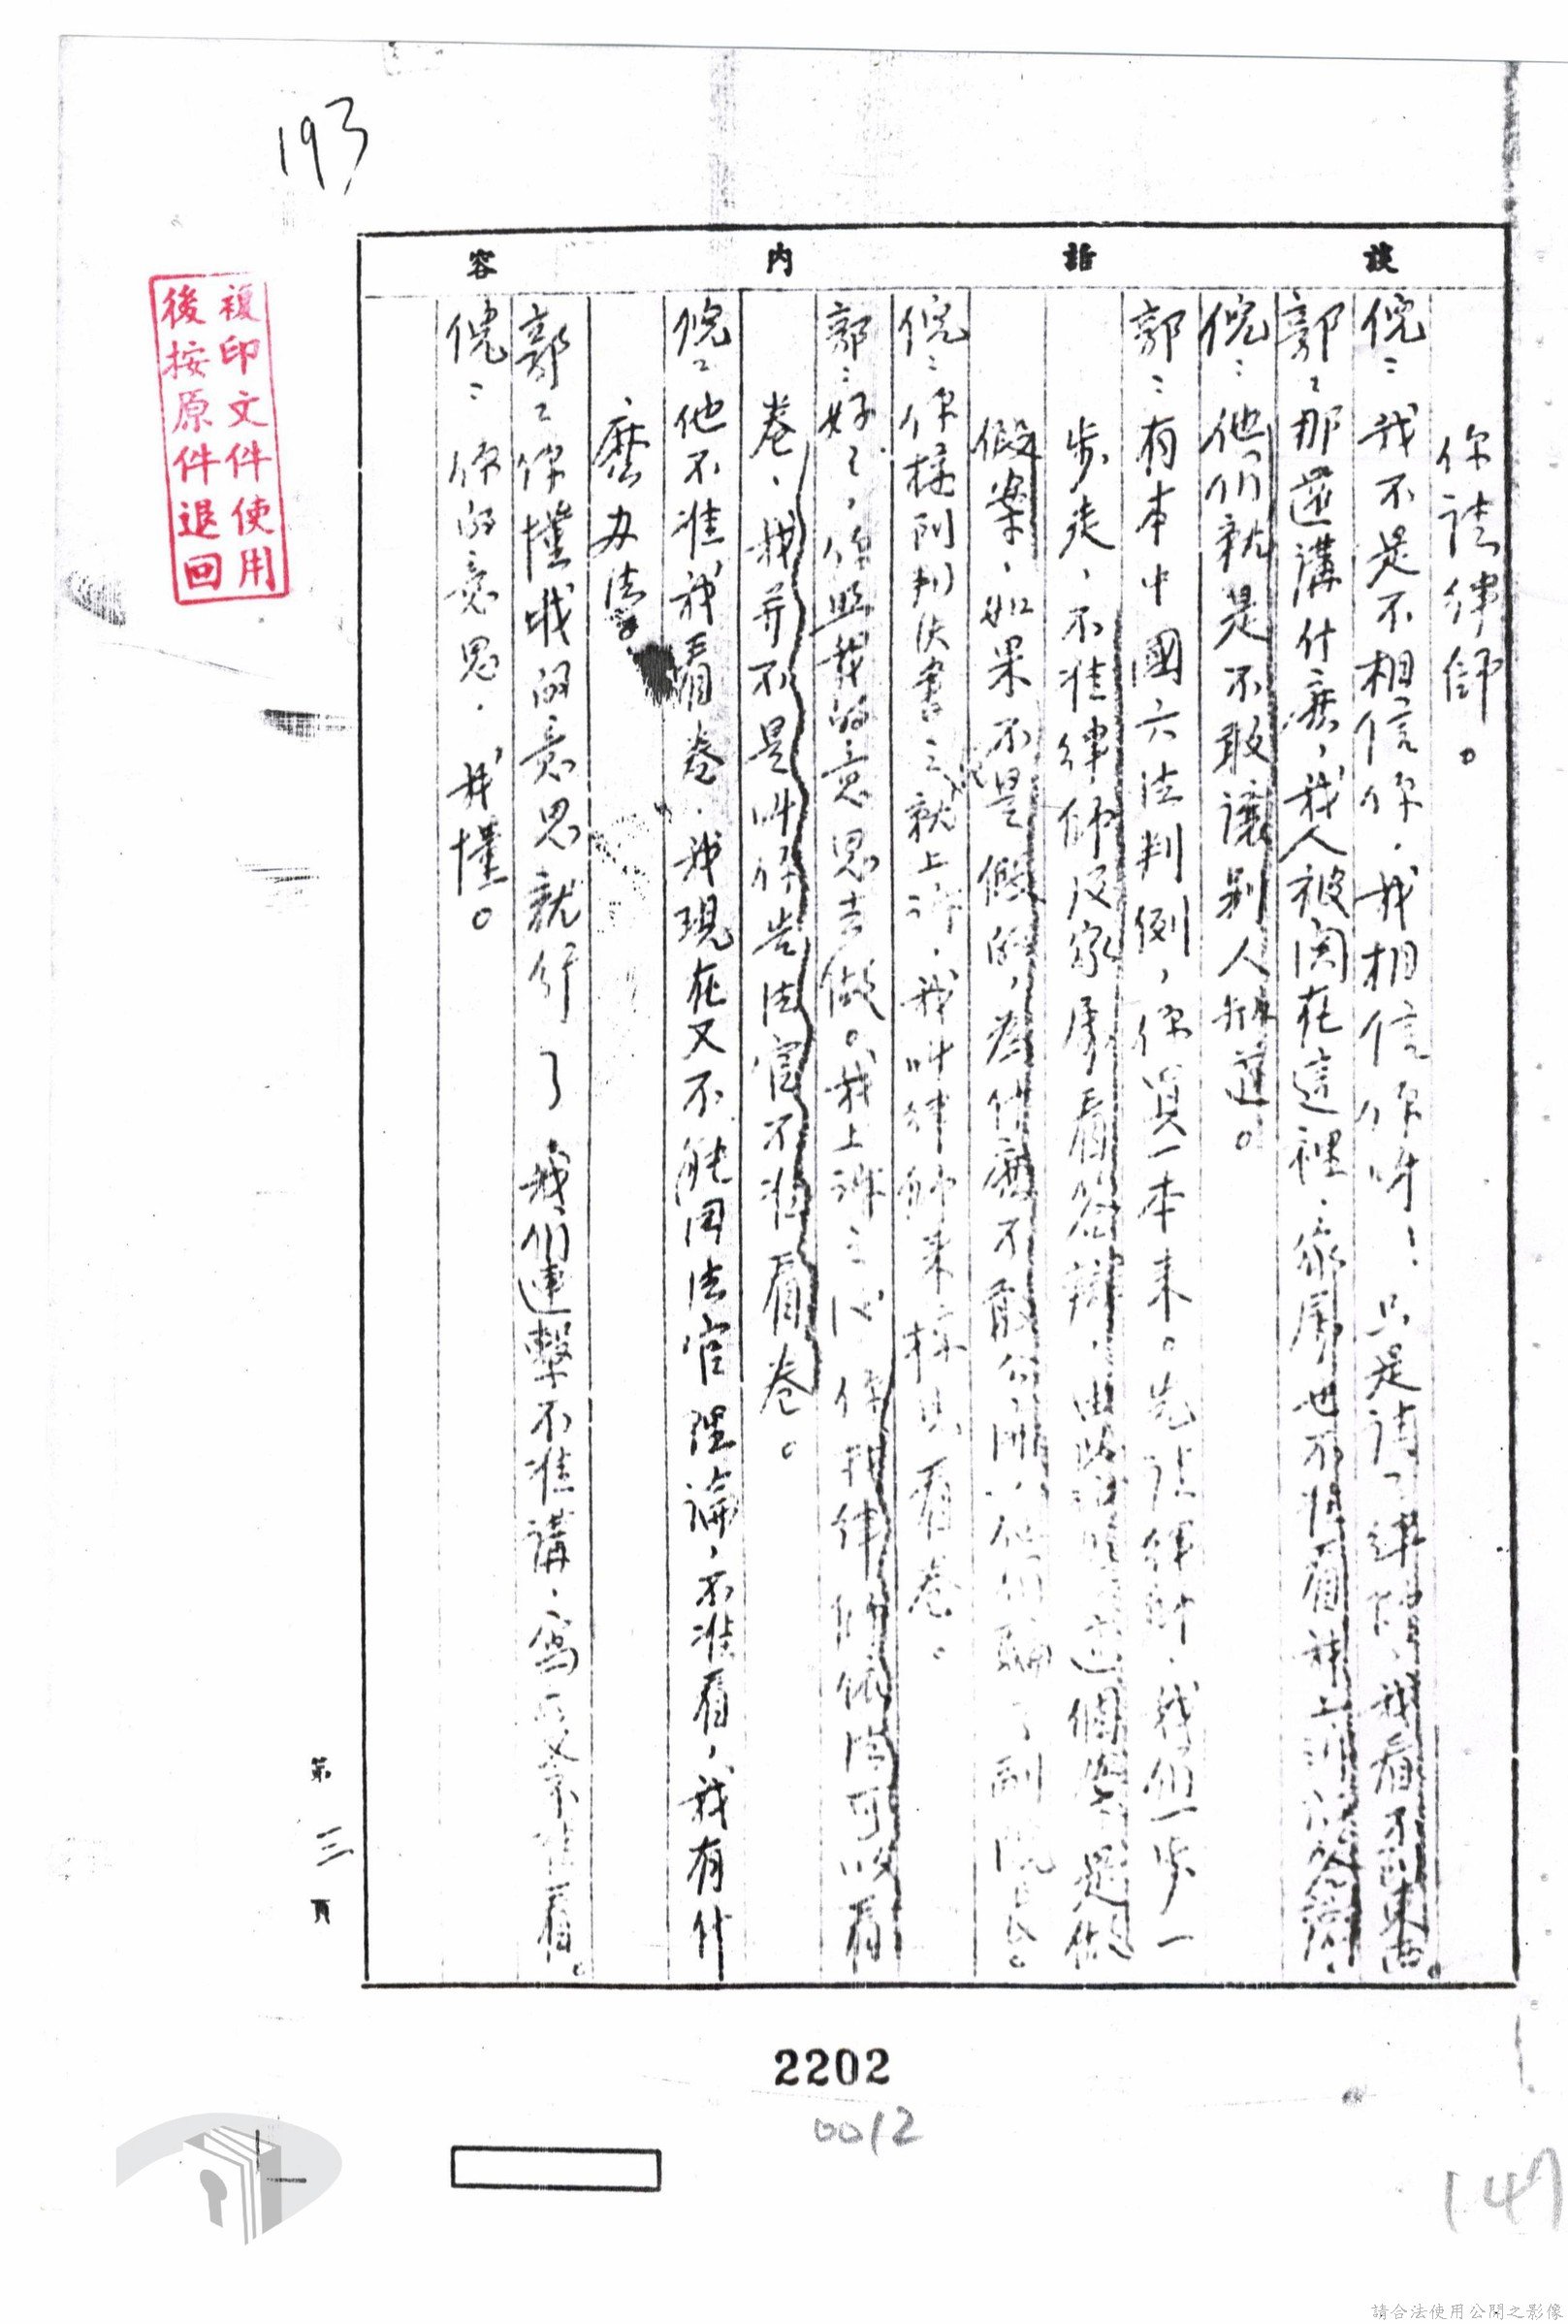 193
複印文件使用
後按原件退回
談話內容
你請律師。
倪:我不是不相信你,我相信你呀!只是請了律師,我看不到東西。
郭:那還講什麽,我人被関在這裡,家属也不准看補上訴
倪:他們就是不敢讓別人知道。
郭:有本中國六法判例,你買一本來。先請律師,我們一步一
步走,不准律師及家屬看答辯,由此這個案是做
假案,如果不是假的,為什麽不敢公開,他們騙了副院長。
倪:你接到判決書之就上訴,我叫律師來採馬看卷。
郭:好了,你照我的意思去做。我上訴之後,你找律師依法可以看
卷,我并不是叫你告法官不准看卷。
倪:他不准我看卷,我現在又不能同法官理論,不准看,我有什
麽办法。
郭:你懂我的意思就行了,我們連擊不准講,寫不准看。
倪:你的意思,我懂。
第三頁
2202
0012
147
請合法使用公開之影像